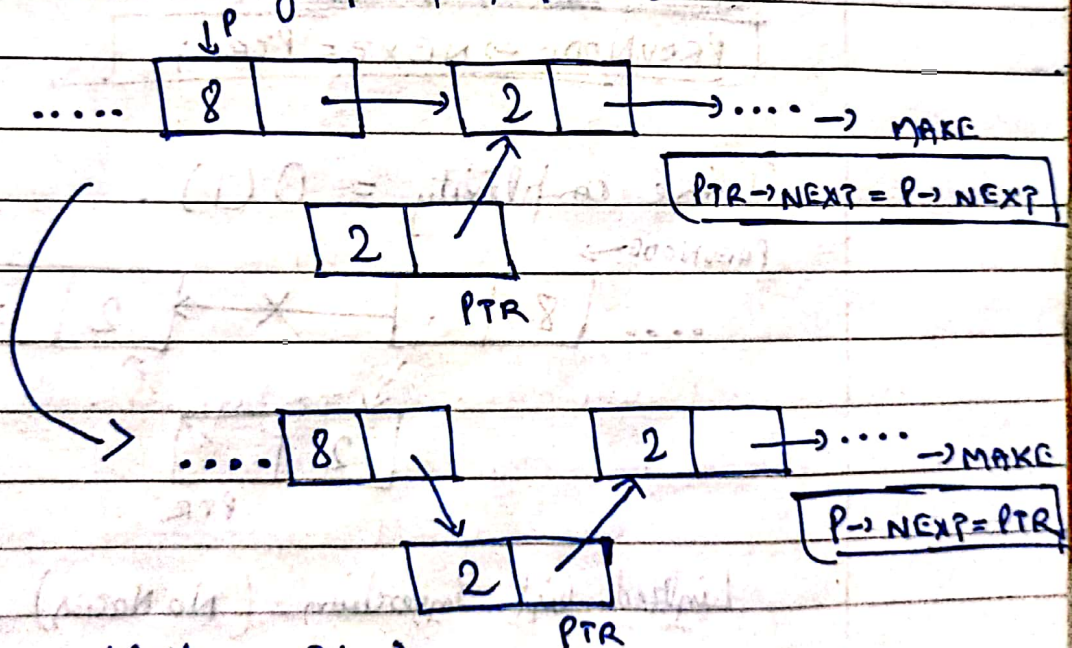 P
..... 8 2 .... → MAKE
PTR→NEXT = P→NEXT
2
PTR
.... 8 2 .... → MAKE
P→NEXT = PTR
2
PTR